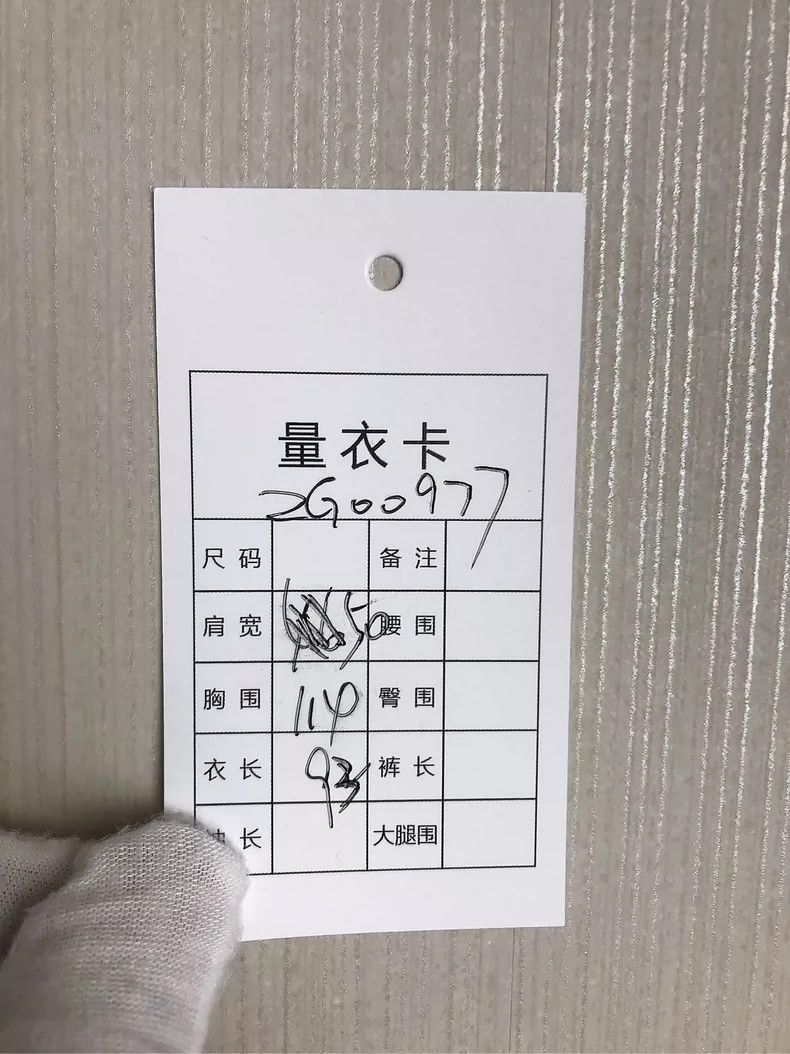 量衣卡
2G00977
尺码 备注
肩宽 50 腰围
胸围 114 臀围
衣长 93 裤长
长 大腿围